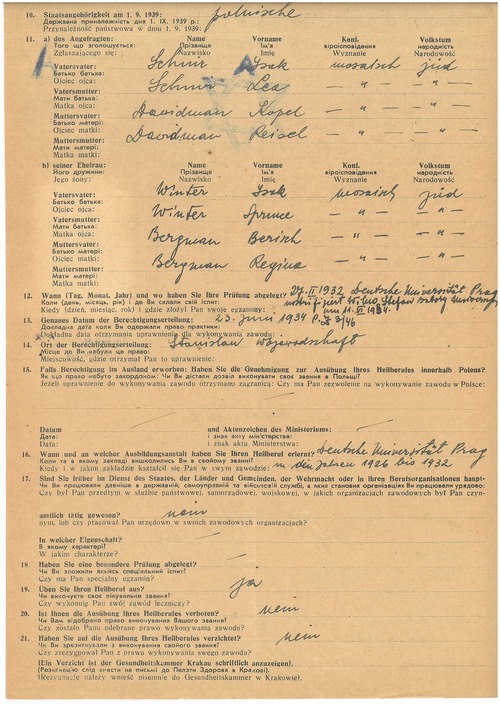 10. Staatsangehörigkeit am 1. 9. 1939: polnische
Державна приналежність дня 1. IX. 1939 р.:
Przynależność państwowa w dniu 1. 9. 1939:
11. a) des Angefragten: Name Vorname Konf. Volkstum
Того що зголошується: Прізвище Ім'я віроісповідання народність
Zgłaszającego się: Nazwisko Imię Wyznanie Narodowość
Vatersvater: Schnur Isak mosaisch jüd
Батько батька:
Ojciec ojca:
Vatersmutter: Schnur Lea — " — — " —
Мати батька:
Matka ojca:
Muttersvater: Dawidman Kopel — " — — " —
Батько матері:
Ojciec matki:
Muttersmutter: Dawidman Reisel — " — — " —
Мати матері:
Matka matki:
b) seiner Ehefrau: Name Vorname Konf. Volkstum
Його дружини: Прізвище Ім'я віроісповідання народність
Jego żony: Nazwisko Imię Wyznanie Narodowość
Vatersvater: Winter Isak mosaisch jüd
Батько батька:
Ojciec ojca:
Vatersmutter: Winter Sprnce — " — — " —
Мати батька:
Matka ojca:
Muttersvater: Bergman Berisch — " — — " —
Батько матері:
Ojciec matki:
Muttersmutter: Bergman Regina — " — — " —
Мати матері:
Matka matki:
12. Wann (Tag, Monat, Jahr) und wo haben Sie Ihre Prüfung abgelegt? 27. II 1932 Deutsche Universität Prag
Коли (день, місяць, рік) і де Ви склали свій іспит: nostrifiziert Wilno, Stefan Batory
Kiedy (dzień, miesiąc, rok) i gdzie złożył Pan swoje egzaminy: am 11. 1934.
13. Genaues Datum der Berechtigungserteilung: 23. Juni 1934
Докладна дата коли Ви одержали право практики:
Dokładna data otrzymania uprawnienia dla wykonywania zawodu:
14. Ort der Berechtigungserteilung: Stanislau Wojewodschaft
Місце де Ви набули це право:
Miejscowość, gdzie otrzymał Pan to uprawnienie:
15. Falls Berechtigung im Ausland erworben: Haben Sie die Genehmigung zur Ausübung Ihres Heilberufes innerhalb Polens?
Як що право набуто закордоном: Чи Ви дістали дозвіл виконувати своє звання в Польщі?
Jeżeli uprawnienie do wykonywania zawodu otrzymano zagranicą: Czy ma Pan zezwolenie na wykonywanie zawodu w Polsce:
Datum und Aktenzeichen des Ministeriums:
Дата: і знак акту міністерства:
Data: i znak aktu Ministerstwa:
16. Wann und an welcher Ausbildungsanstalt haben Sie Ihren Heilberuf erlernt? Deutsche Universität Prag
Коли та в якому закладі вишколились Ви в свойому званні? in den Jahren 1926 bis 1932
Kiedy i w jakim zakładzie kształcił się Pan w swym zawodzie:
17. Sind Sie früher im Dienst des Staates, der Länder und Gemeinden, der Wehrmacht oder in Ihren Berufsorganisationen haupt-
Чи Ви працювали давніше в державній, самоуправній та військовій службі, в яких станових організаціях Ви працювали урядово:
Czy był Pan przedtym w służbie państwowej, samorządowej, wojskowej, w jakich organizacjach zawodowych był Pan czyn-
amtlich tätig gewesen? nein
nym, lub czy pracował Pan urzędowo w swoich zawodowych organizacjach?
In welcher Eigenschaft?
В якому характері?
W jakim charakterze?
18. Haben Sie eine besondere Prüfung abgelegt?
Чи Ви зложили якийсь спеціяльний іспит?
Czy ma Pan specjalny egzamin?
19. Üben Sie Ihren Heilberuf aus? ja
Чи виконуєте своє лікувальне звання?
Czy wykonuje Pan swój zawód leczniczy?
20. Ist Ihnen die Ausübung Ihres Heilberufes verboten? nein
Чи Вам відобрано право виконування Вашого звання?
Czy zostało Panu odebrane prawo wykonywania zawodu?
21. Haben Sie auf die Ausübung Ihres Heilberufes verzichtet? nein
Чи Ви зрезигнували з виконування своєго звання?
Czy zrezygnował Pan z prawa wykonywania swego zawodu?
(Ein Verzicht ist der Gesundheitskammer Krakau schriftlich anzuzeigen).
(Резиґнацію слід внести на письмі до Палати Здоровя в Кракові).
(Rezygnację należy wnieść pisemnie do Gesundheitskammer w Krakowie).